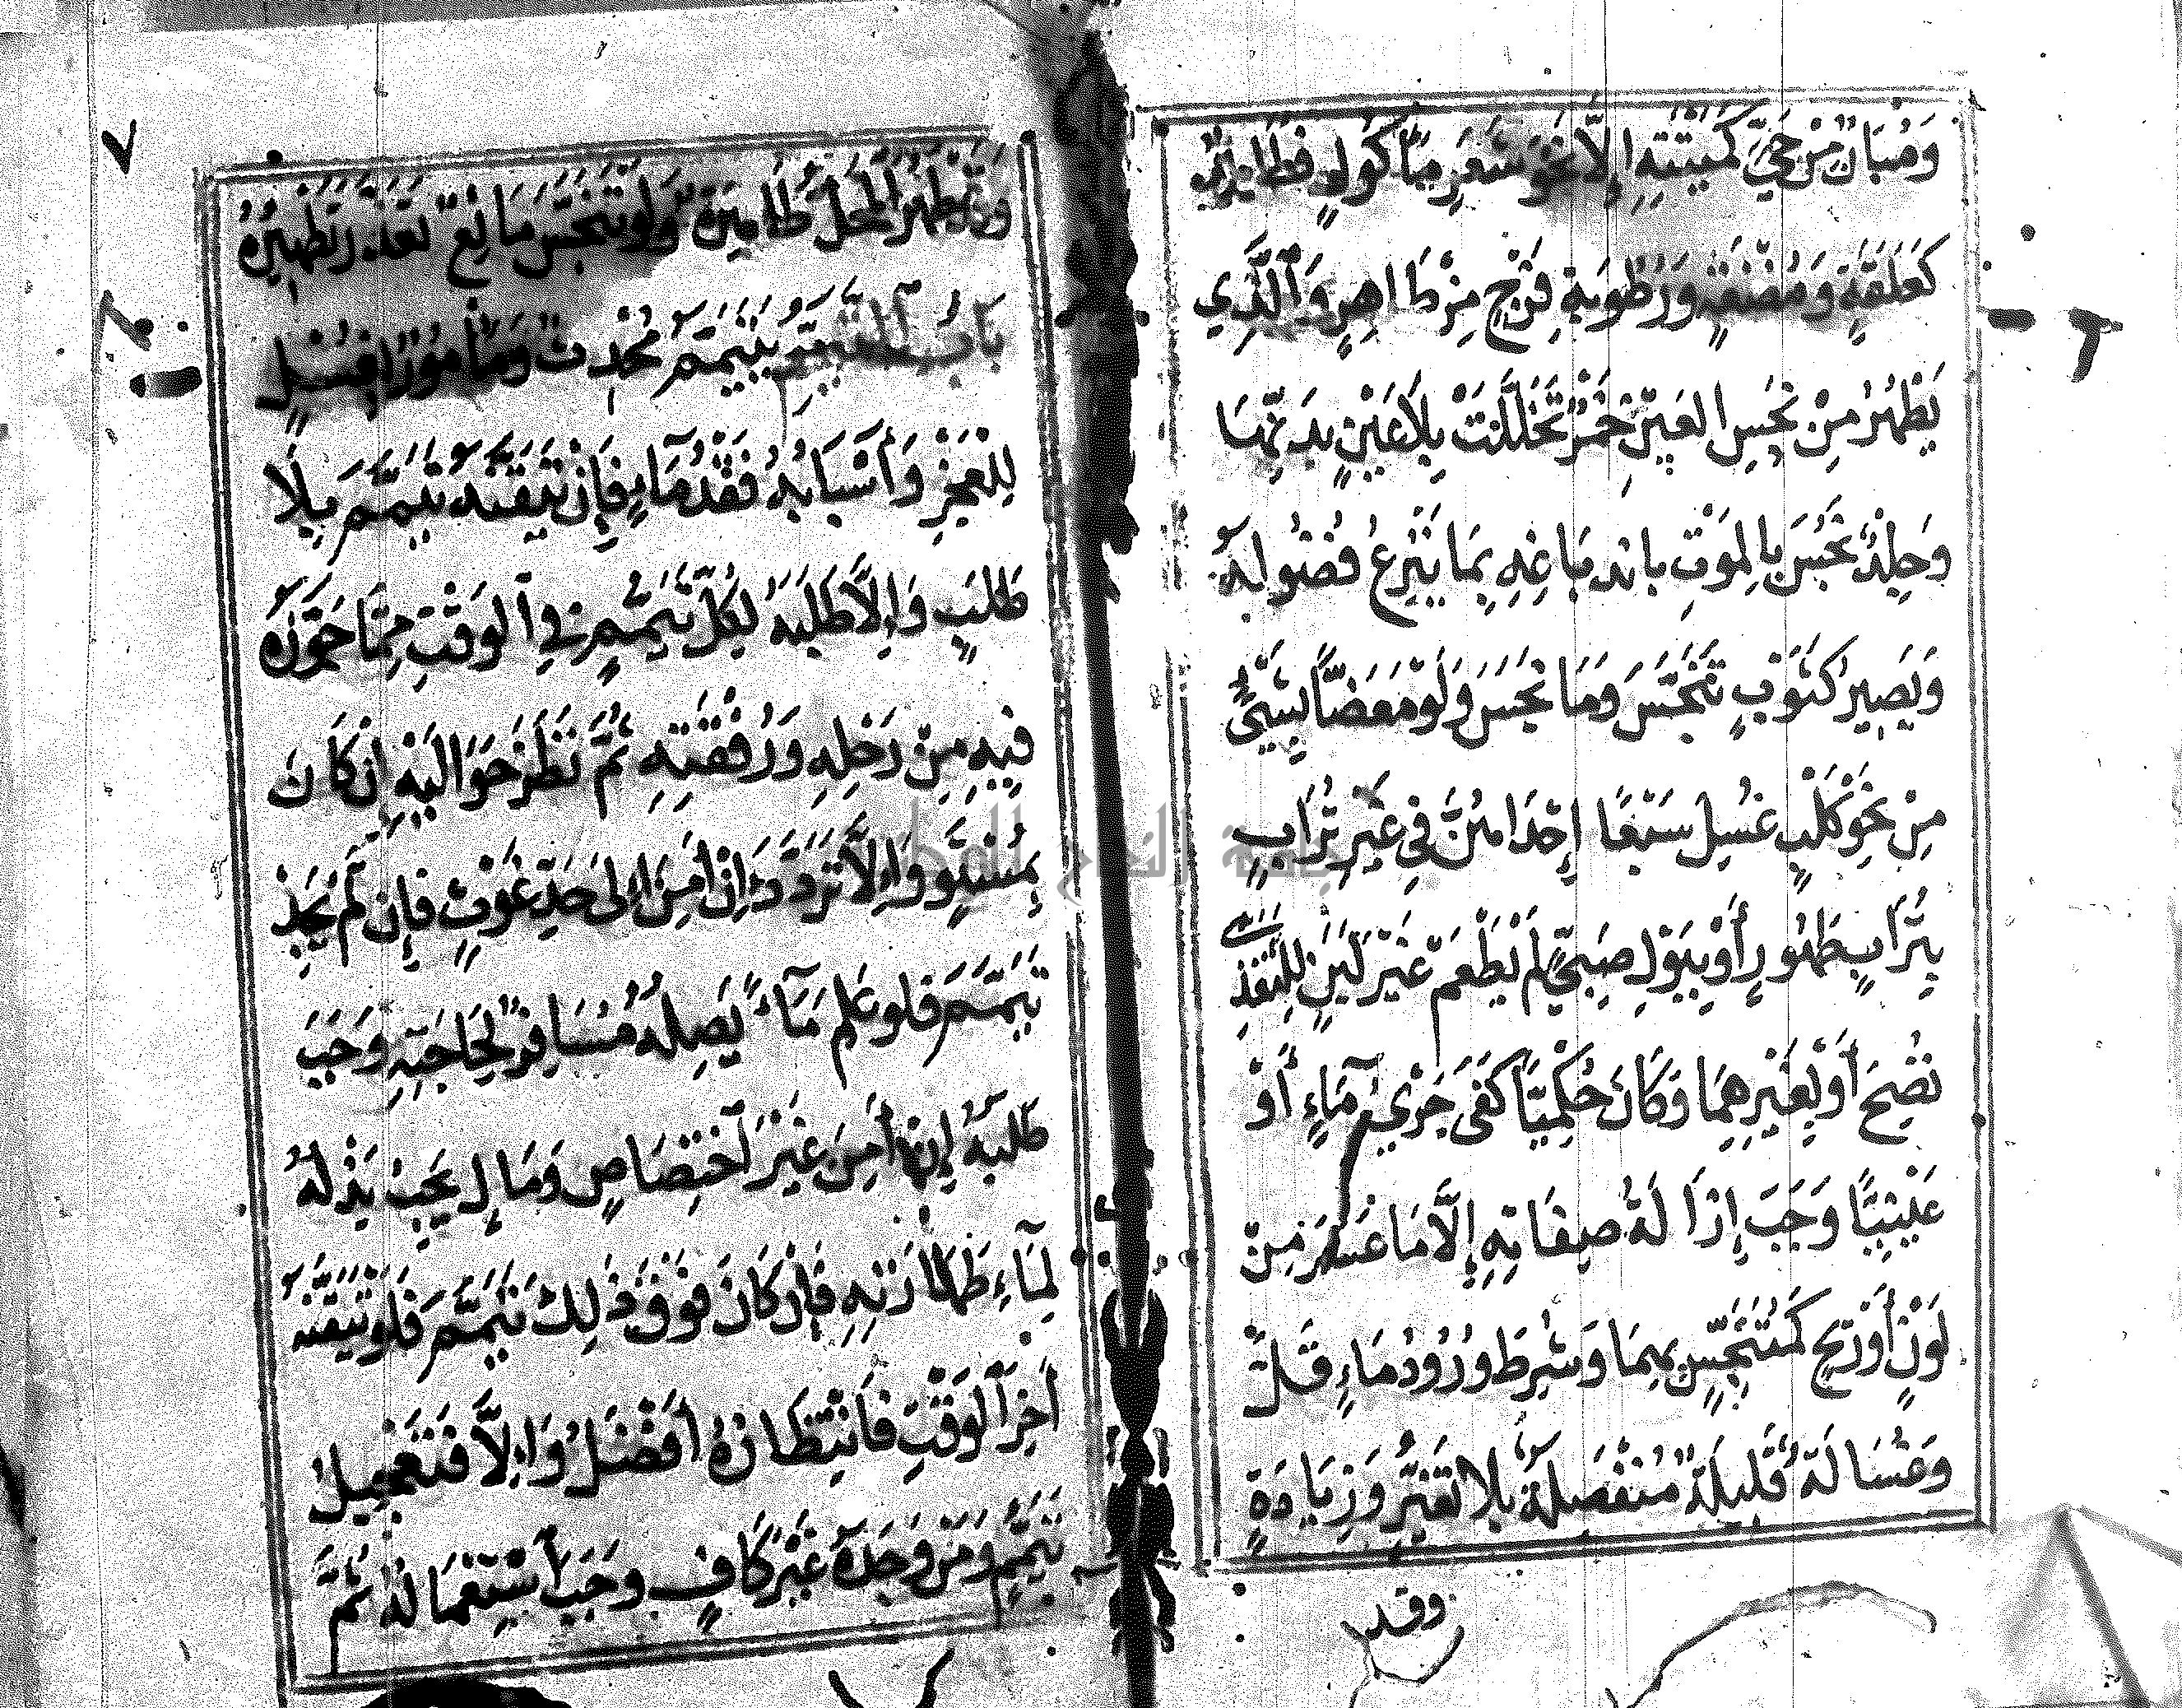 وَمُبَانٌ مِنْ حَيٍّ كَمَيْتَتِهِ إِلَّا نَحْوَ شَعَرِ مَأْكُولٍ فَطَاهِرٌ
كَعَلَقَةٍ وَمُضْغَةٍ وَرُطُوبَةِ فَرْجٍ مِنْ طَاهِرٍ وَالَّذِي
يَطْهُرُ مِنْ نَجِسِ العَيْنِ خَمْرٌ تَخَلَّلَتْ بِلَا عَيْنٍ بِدَنِّهَا
وَجِلْدٌ نَجُسَ بِالمَوْتِ باندباغِهِ بِمَا يَنْزِعُ فُضُولَهُ
وَيَصِير كَثَوْبٍ تَنَجَّسَ وَمَا نَجُسَ وَلَوْ مَعَضًّا بِشَيْءٍ
مِنْ نَحْوِ كَلْبٍ غُسِلَ سَبْعًا إِحْدَاهُنَّ فِي غَيْرِ تُرَابٍ
بِتُرَابٍ طَهُورٍ أَوْ بِبَوْلِ صَبِيٍّ لَمْ يَطْعَمْ غَيْرَ لَبَنٍ لِلتَّغَذِّي
نُضِحَ أَوْ بِغَيْرِهِمَا وَكَانَ حُكْمِيًّا كَفَى جَرْيُ مَاءٍ أَوْ
عَيْنِيًّا وَجَبَ إِزَالَةُ صِفَاتِهِ إِلَّا مَا عَسُرَ مِنْ
لَوْنٍ أَوْ رِيحٍ كَمُتَنَجِّسٍ بِهِمَا وَشُرِطَ وُرُودُ مَاءٍ قَلَّ
وَغُسَالَةٌ قَلِيلَةٌ مُنْفَصِلَةٌ بِلَا تَغَيُّرٍ وَزِيَادَةٍ
وقد
٧
وَقَدْ طَهُرَ المَحَلُّ طَاهِرَةٌ وَلَوْ تَنَجَّسَ مَائِعٌ تَعَذَّرَ تَطْهِيرُهُ
بَابُ التَّيَمُّمِ يَتَيَمَّمُ مُحْدِثٌ وَمَأْمُورٌ بِغُسْلٍ
لِلْعَجْزِ وَأَسْبَابُهُ فَقْدُ مَاءٍ فَإِنْ تَيَقَّنَهُ تَيَمَّمَ بِلَا
طَلَبٍ وَإِلَّا طَلَبَهُ لِكُلِّ تَيَمُّمٍ فِي الوَقْتِ مِمَّا جَوَّزَهُ
فِيهِ مِنْ رَحْلِهِ وَرُفْقَتِهِ ثُمَّ نَظَرَ حَوَالَيْهِ إِنْ كَانَ
بِمُسْتَوٍ وَإِلَّا تَرَدَّدَ إِنْ أَمِنَ إِلَى حَدِّ غَوْثٍ فَإِنْ لَمْ يَجِدْ
تَيَمَّمَ فلو علم مَاءً يَصِلُهُ مُسَافِرٌ لِحَاجَتِهِ وَجَبَ
طَلَبُهُ إِنْ أَمِنَ غَيْرَ اخْتِصَاصٍ وَمَالٍ يَجِبُ بَذْلُهُ
لِمَاءِ طَهَارَتِهِ فَإِنْ كَانَ فَوْقَ ذَلِكَ تَيَمَّمَ فَلَوْ تَيَقَّنَهُ
آخِرَ الوَقْتِ فَانْتِظَارُهُ أَفْضَلُ وَإِلَّا فَتَعْجِيلُ
تَيَمُّمٍ وَمَنْ وَجَدَهُ غَيْرَ كَافٍ وَجَبَ اسْتِعْمَالُهُ ثُمَّ